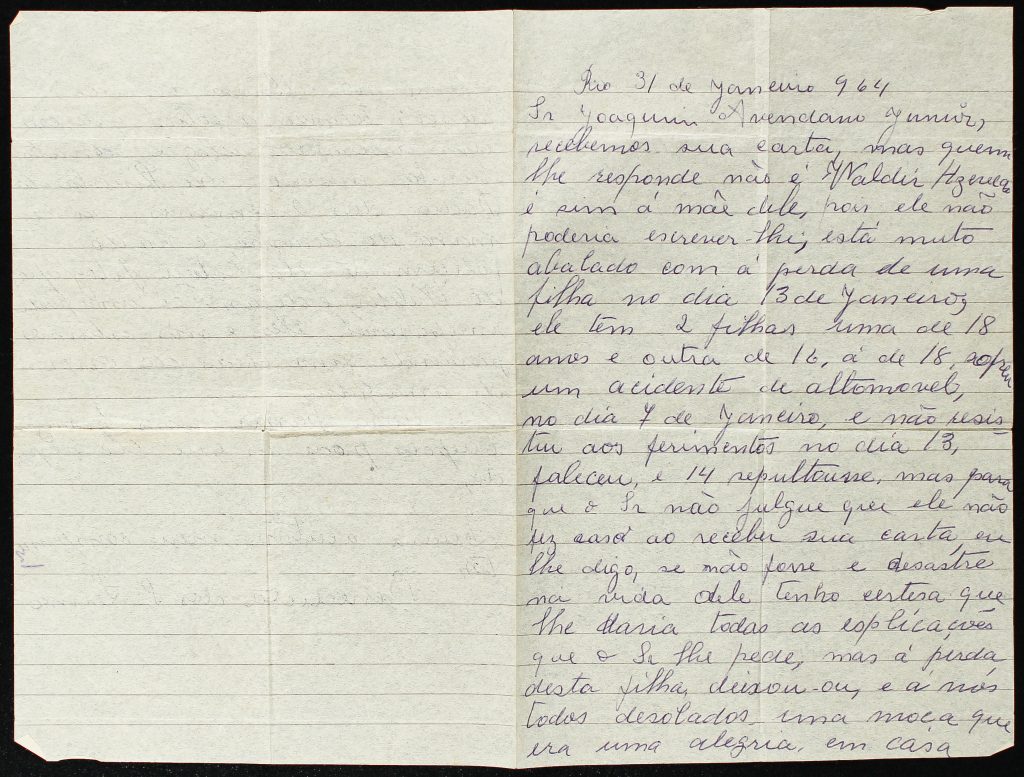 Rio 31 de Janeiro 964
Sr Joaquim Avendano Junior,
recebemos sua carta, mas quem
lhe responde não é Waldir Azevedo
é sim á mãe dele, pois ele não
poderia escrever-lhe, está muto
abalado com á perda de uma
filha no dia 13 de Janeiro,
ele têm 2 filhas uma de 18
anos e outra de 16, á de 18, sofreu
um acidente de altomovel,
no dia 7 de Janeiro, e não resis-
tiu aos ferimentos no dia 13,
faleceu, e 14 sepultousse, mas para
que o Sr não julgue que ele não
fez caso ao receber sua carta, eu
lhe digo, se não fosse e desastre
na vida dele tenho certesa que
lhe daria todas as esplicações
que o Sr lhe pede, mas á perda
desta filha, deixou-ou, e á nós
todos desolados uma moça que
era uma alegria, em casa